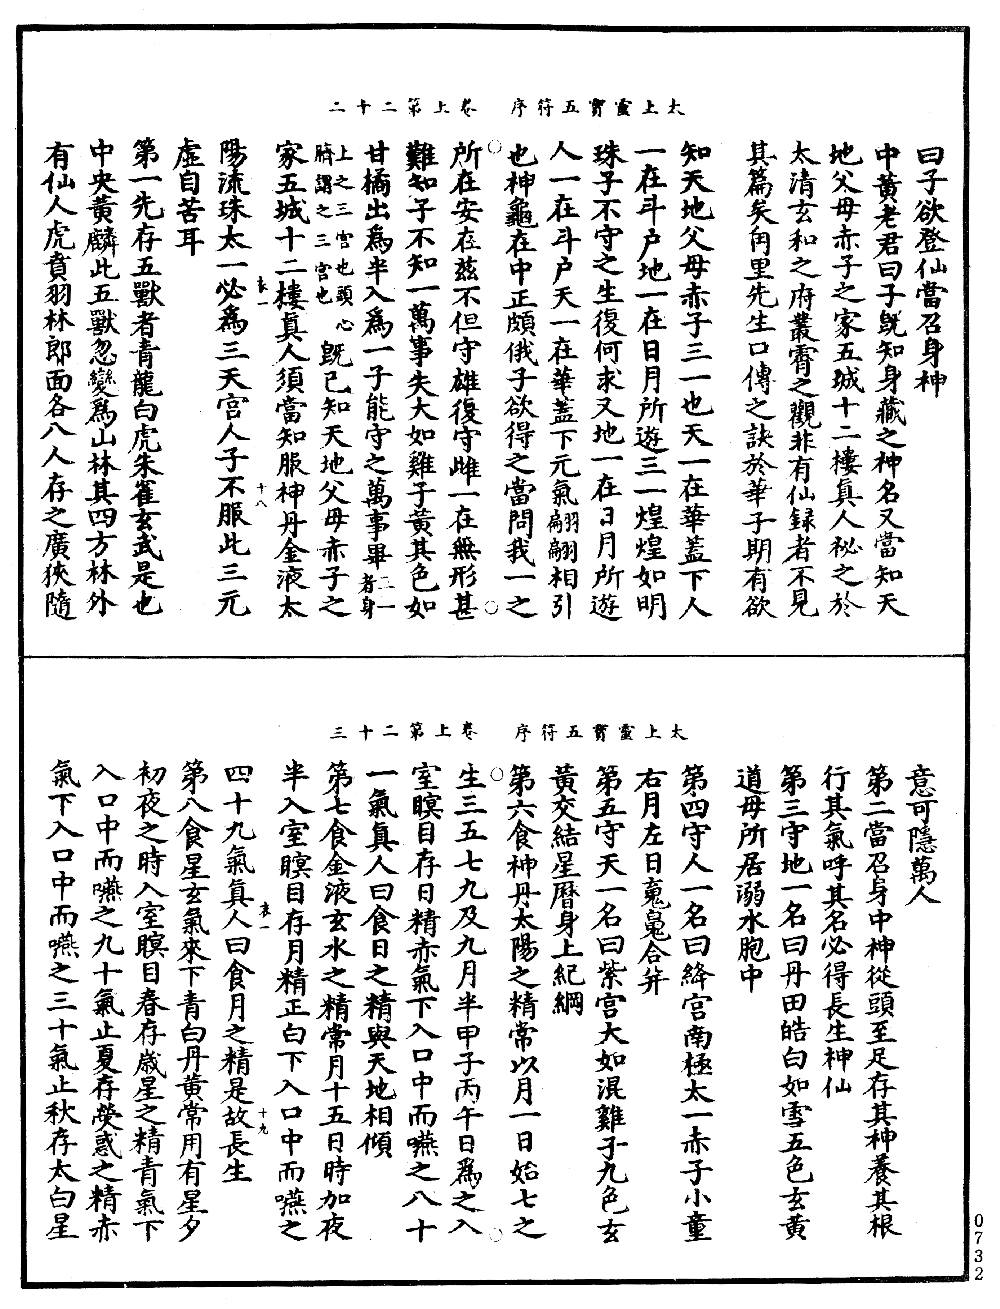 太上靈寶五符序　卷上第二十二
曰子欲登仙當召身神
中黃老君曰子旣知身藏之神名又當知天
地父母赤子之家五城十二樓真人秘之於
太清玄和之府叢霄之觀非有仙録者不見
其篇矣角里先生口傳之訣於華子期有欲
知天地父母赤子三一也天一在華蓋下人
一在斗户地一在日月所遊三一煌煌如明
珠子不守之生復何求又地一在日月所遊
人一在斗户天一在華蓋下元氣翩翩相引
也神龜在中正頗俄子欲得之當問我一之
所在安在茲不但守雄復守雌一在無形甚
難知子不知一萬事失大如雞子黃其色如
甘橘出為半入為一子能守之萬事畢三一者身
上之三宮也頭心臍謂之三宮也旣已知天地父母赤子之
家五城十二樓真人須當知服神丹金液太
袁一
十八
陽流珠太一必為三天宮人子不服此三元
虛自苦耳
第一先存五獸者青龍白虎朱雀玄武是也
中央黃麟此五獸忽變為山林其四方林外
有仙人虎賁羽林郎面各八人存之廣狹隨
太上靈寶五符序　卷上第二十三
意可隱萬人
第二當召身中神從頭至足存其神養其根
行其氣呼其名必得長生神仙
第三守地一名曰丹田皓白如雪五色玄黃
道母所居溺水胞中
第四守人一名曰絳宮南極太一赤子小童
右月左日䰟䰟合并
第五守天一名曰紫宮大如混雞子九色玄
黃交結星曆身上紀綱
第六食神丹太陽之精常以月一日始七之
生三五七九及九月半甲子丙午日為之入
室瞑目存日精赤氣下入口中而嚥之八十
一氣真人曰食日之精與天地相傾
第七食金液玄水之精常月十五日時加夜
半入室瞑目存月精正白下入口中而嚥之
四十九氣真人曰食月之精是故長生
袁一
十九
第八食星玄氣來下青白丹黃常用有星夕
初夜之時入室瞑目春存歲星之精青氣下
入口中而嚥之九十氣止夏存熒惑之精赤
氣下入口中而嚥之三十氣止秋存太白星
0732